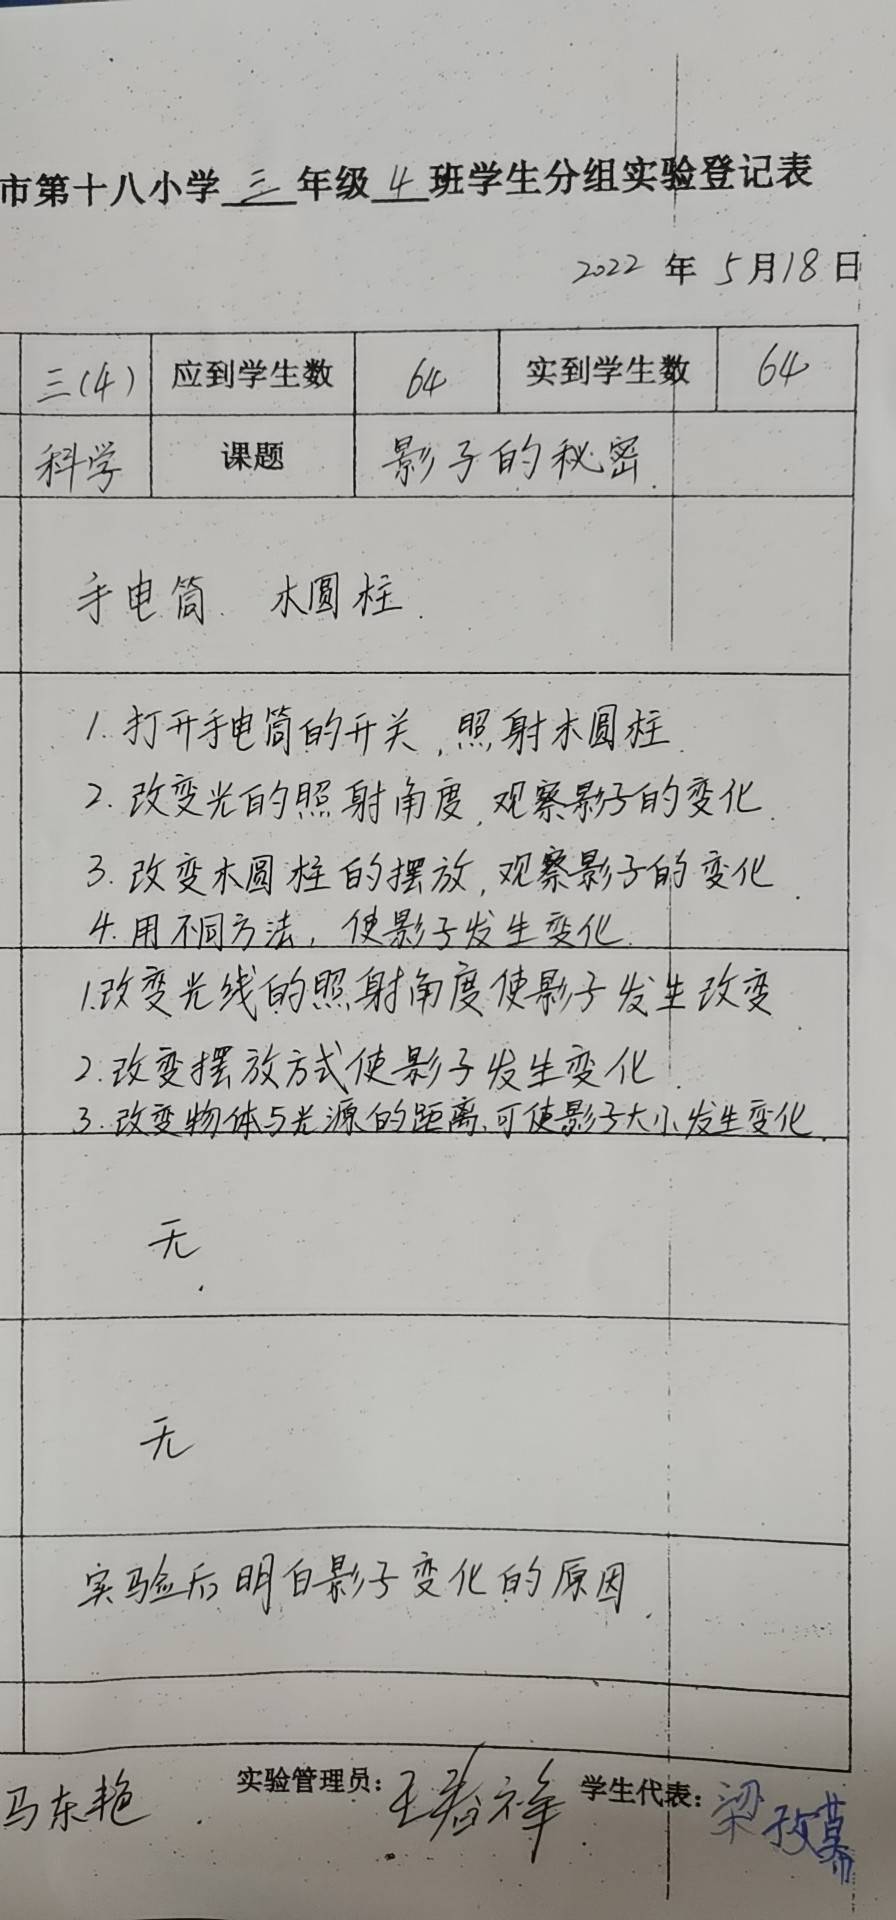 市第十八小学三年级4班学生分组实验登记表
2022年5月18日
三(4) 应到学生数 64 实到学生数 64
科学 课题 影子的秘密.
手电筒. 木圆柱.
1.打开手电筒的开关,照射木圆柱.
2.改变光的照射角度,观察影子的变化.
3.改变木圆柱的摆放,观察影子的变化.
4.用不同方法,使影子发生变化.
1.改变光线的照射角度使影子发生改变.
2.改变摆放方式使影子发生变化.
3.改变物体与光源的距离,可使影子大小发生变化.
无
无
实验后明白影子变化的原因.
马东艳 实验管理员: 学生代表: 梁